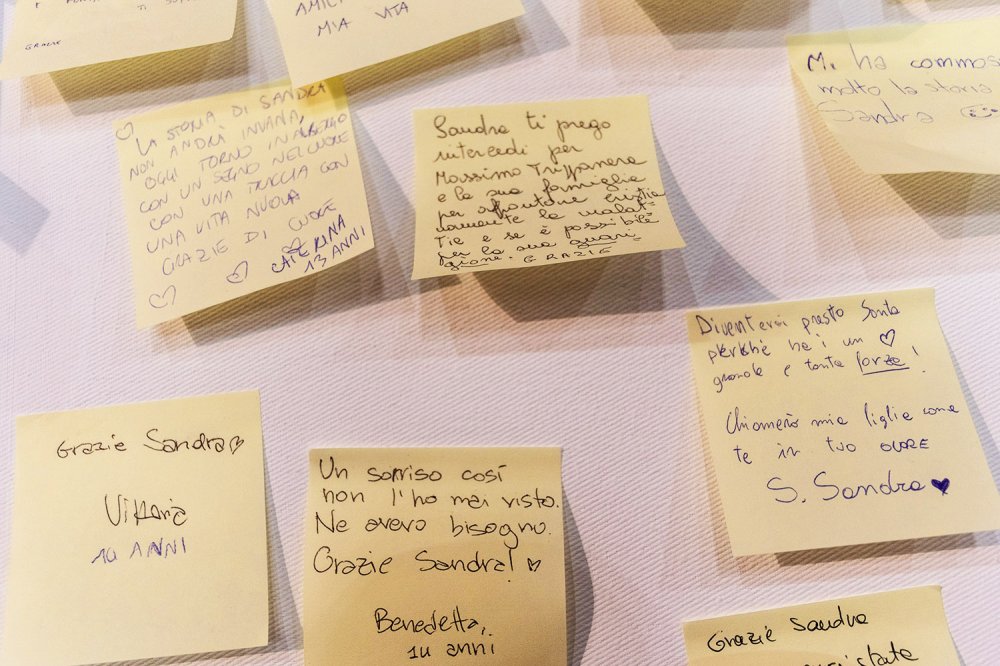 GRAZIE
MIA VITA
LA STORIA DI SANDRA
NON ANDRÀ INVANA,
OGGI TORNO IN ALBERGO
CON UN SEGNO NEL CUORE
CON UNA TRACCIA CON
UNA VITA NUOVA
GRAZIE DI CUORE
CATERINA
13 ANNI
Sandra ti prego
intercedi per
Massimo
e la sua famiglia
per affrontare cristia
namente la malat-
tie e se è possibile
per la sua guari
gione. GRAZIE
Mi ha commos
molto la storia
Sandra
Diventerai presto Santa
perchè hai un ♡
grande e tanta forza!
Chiamerò mia figlia come
te in tuo ONORE
S. Sandra ♥
Grazie Sandra ♡
Vittoria
14 ANNI
Un sorriso così
non l'ho mai visto.
Ne avevo bisogno.
Grazie Sandra! ♡
Benedetta,
14 anni
Grazie Sandra